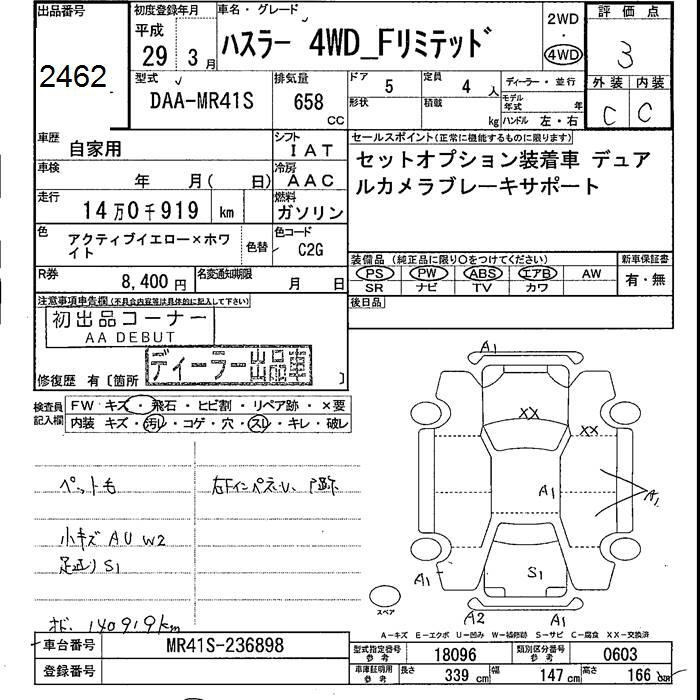 出品番号
2462
初度登録年月
平成
29 3 月
車名・グレード
ハスラー 4WD_Fリミテッド
2WD
・
4WD
評価点
3
外装 内装
C C
型式
DAA-MR41S
排気量
658
CC
ドア 5
形状
定員 4 人
積載 kg
ディーラー・並行
モデル年式 年
ハンドル 左・右
車歴
自家用
シフト
IAT
車検
年 月( 日)
冷房
AAC
走行
14万0千919 km
燃料
ガソリン
色
アクティブイエロー×ホワ
イト
色替
色コード
C2G
R券
8,400 円
名変通知期限
月 日
セールスポイント(正常に機能するものに限ります)
セットオプション装着車 デュア
ルカメラブレーキサポート
装備品 (純正品に限り○をつけてください)
PS PW ABS エアB AW
SR ナビ TV カワ
新車保証書
有・無
後日品
注意事項申告欄(不具合内容等は具体的に記入して下さい)
初出品コーナー
AA DEBUT
ディーラー出品車
修復歴 有〔箇所 〕
検査員
記入欄
FW キズ・飛石・ヒビ割・リペア跡・×要
内装 キズ・汚レ・コゲ・穴・スレ・キレ・破レ
ペット毛
小キズ AU W2
S1
140919km
A1
XX
XX
A1
A1
A1
S1
A2
A1
スペア
A-キズ E-エクボ U-凹み W-補修跡 S-サビ C-腐食 XX-交換済
車台番号
MR41S-236898
登録番号
型式指定番号
参考
18096
類別区分番号
参考
0603
車庫証明用
参考
長さ 339 cm
幅 147 cm
高さ 166 cm